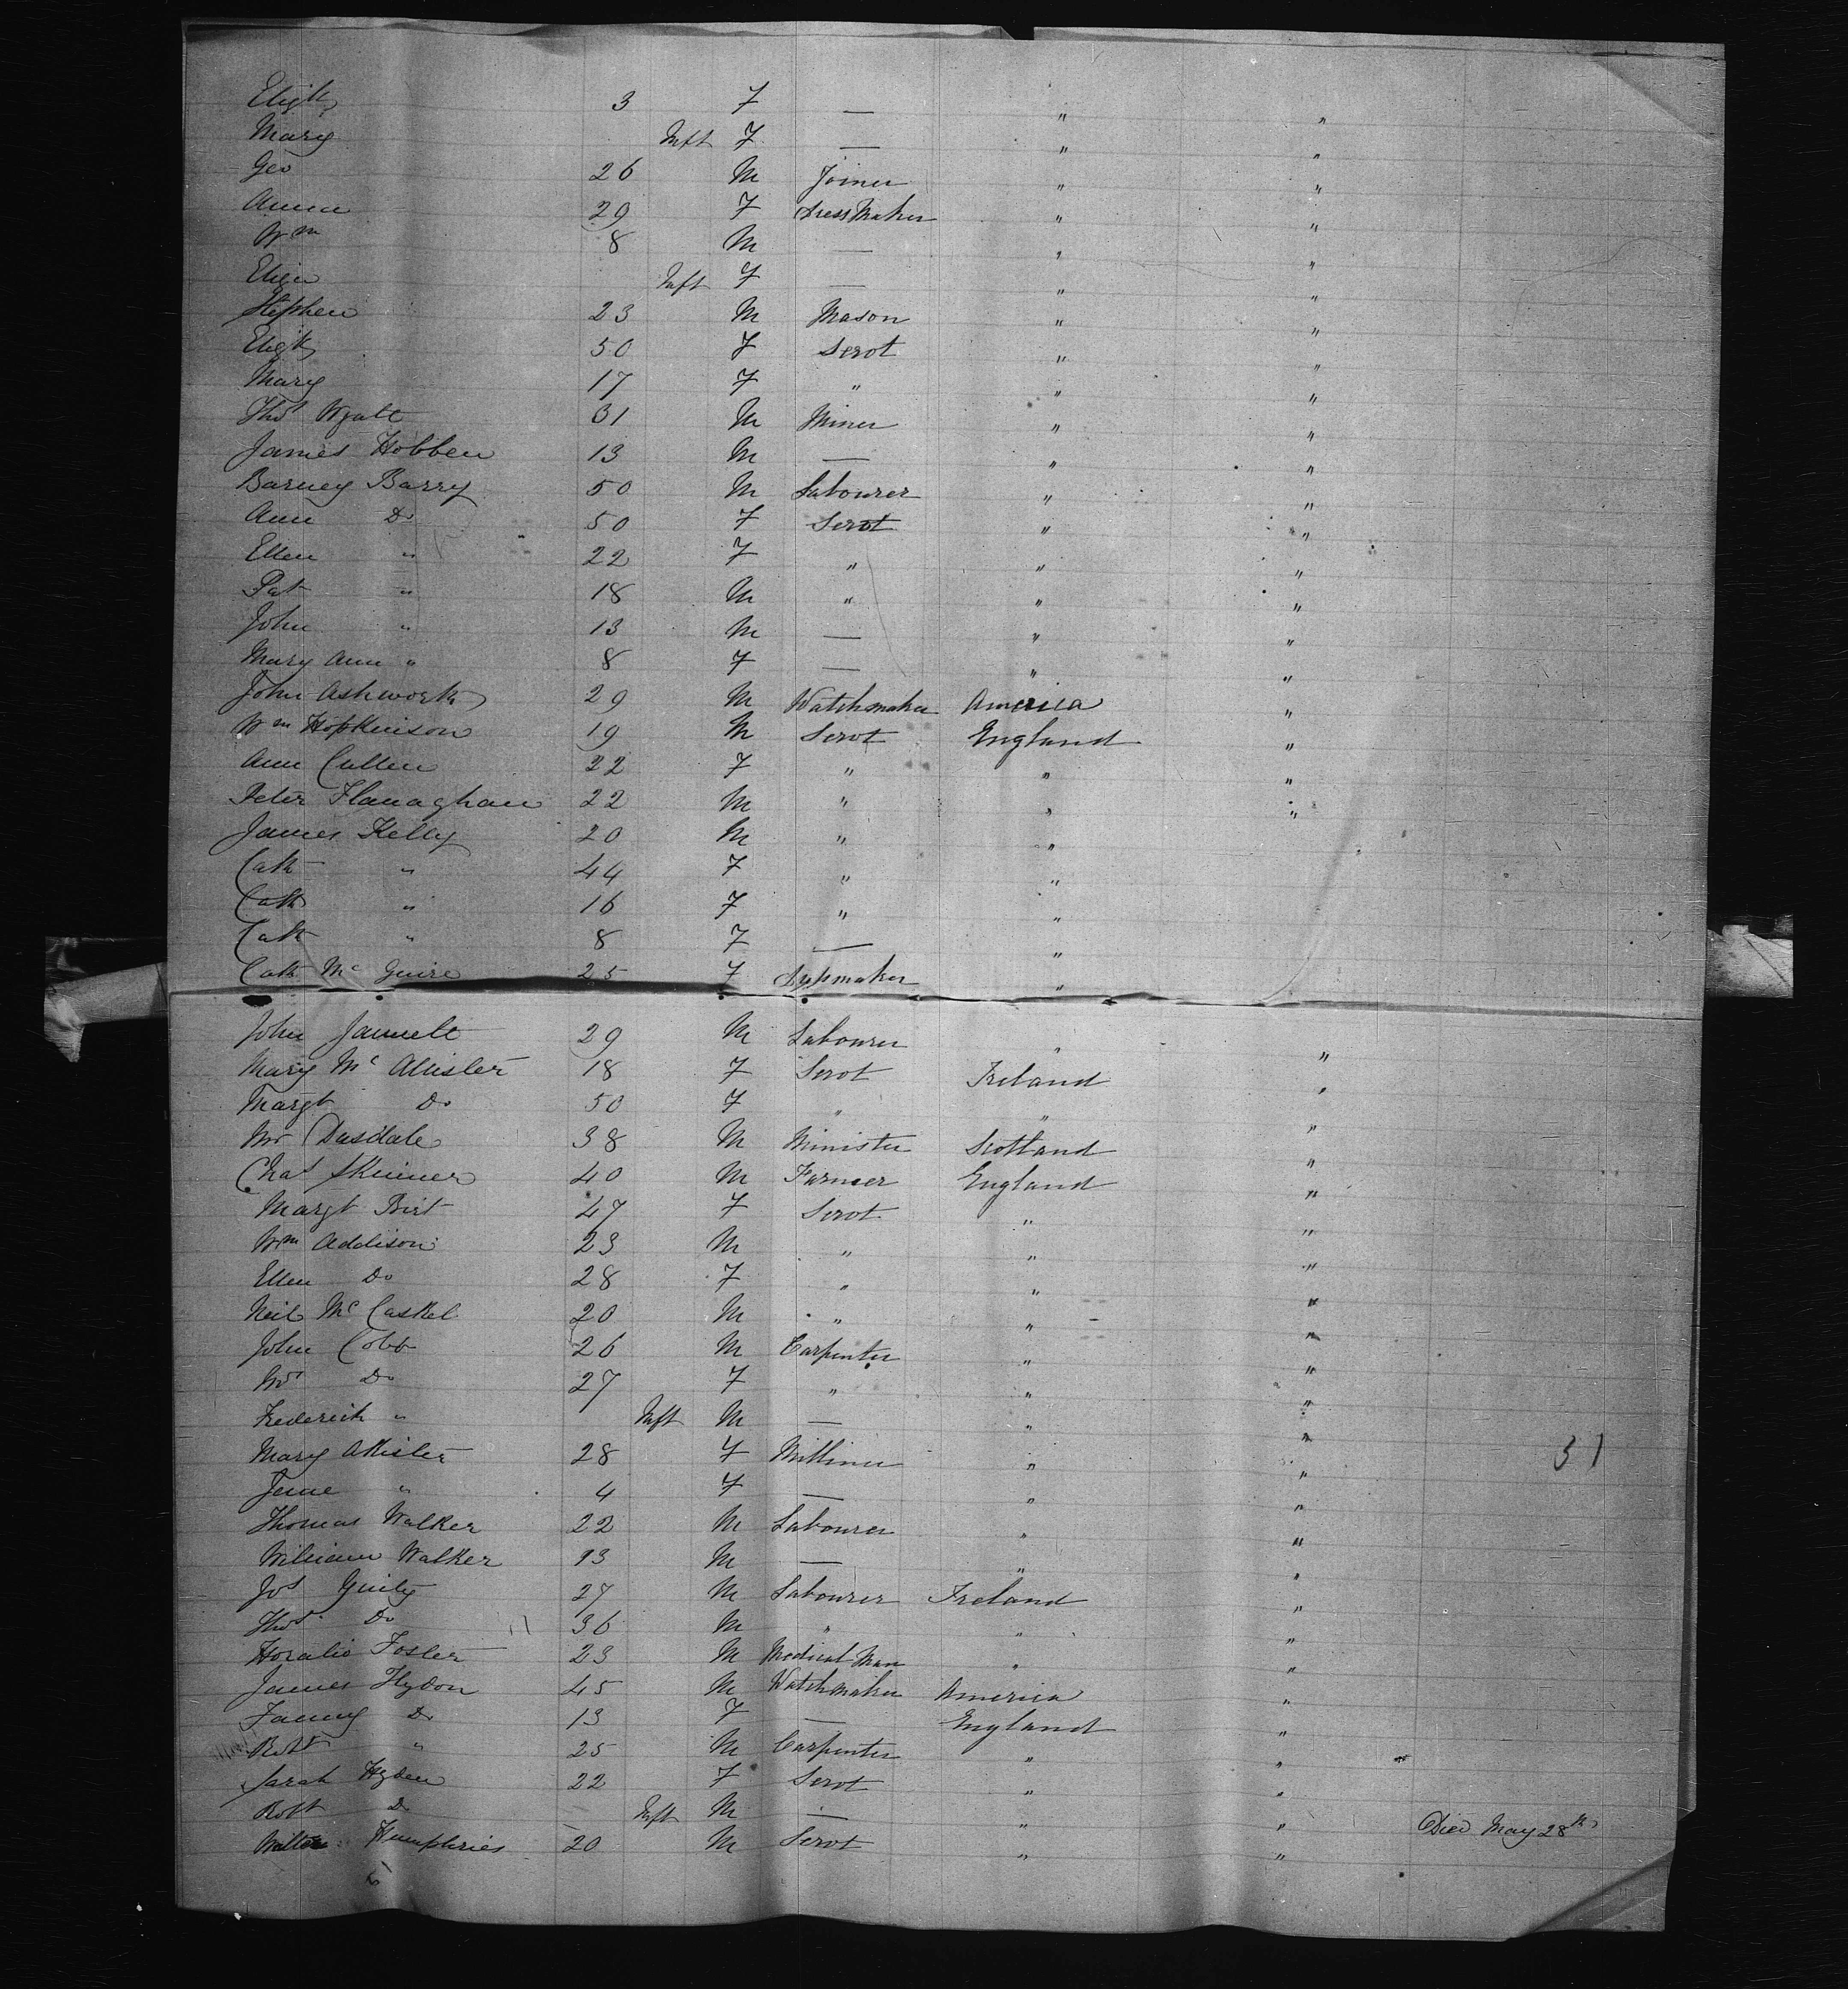 Elizth 3 F — " "
Mary Inft F — " "
Geo 26 M Joiner " "
Anna 29 F Dress Maker " "
Wm 8 M — " "
Eliza Inft F — " "
Stephen 23 M Mason " "
Elizth 50 F Servt " "
Mary 17 F " " "
Thos Wyatt 31 M Miner " "
James Hobben 13 M — " "
Barney Barry 50 M Labourer " "
Ann Do 50 F Servt " "
Ellen " 22 F " " "
Pat " 18 M " " "
John " 13 M — " "
Mary Ann " 8 F — " "
John Ashworth 29 M Watchmaker America "
Wm Hopkinson 19 M Servt England "
Ann Cullen 22 F " " "
Peter Flanaghan 22 M " " "
James Kelly 20 M " "
Cath " 44 F " "
Cath " 16 F " "
Cath " 8 F — "
Cath Mc Guire 25 F "
John 29 M Labourer " "
Mary Mc Allister 18 F Servt Ireland "
Margt Do 50 F " " "
Mr Dasdale 38 M Minister Scotland "
Chas Skinner 40 M Farmer England "
Margt Birt 47 F Servt " "
Wm Addison 23 M " " "
Ellen Do 28 F " " "
Neil Mc Caskel 20 M " " "
John Cobb 26 M Carpenter " "
Mrs Do 27 F " " "
Frederick " Inft M — " "
Mary 28 F Milliner " " 31
Jane " 4 F — " "
Thomas Walker 22 M Labourer " "
William Walker 13 M — " "
Jos 27 M Labourer Ireland "
Thos Do 36 M " " "
Horatio Foster 23 M Medical Man " "
James Hydon 45 M Watchmaker America "
Fanny Do 13 F — England "
Robt " 25 M Carpenter " "
Sarah Hyden 22 F Servt " "
Robt Do Inft M — " " Died May 28th
Walter Humphries 20 M Servt " "